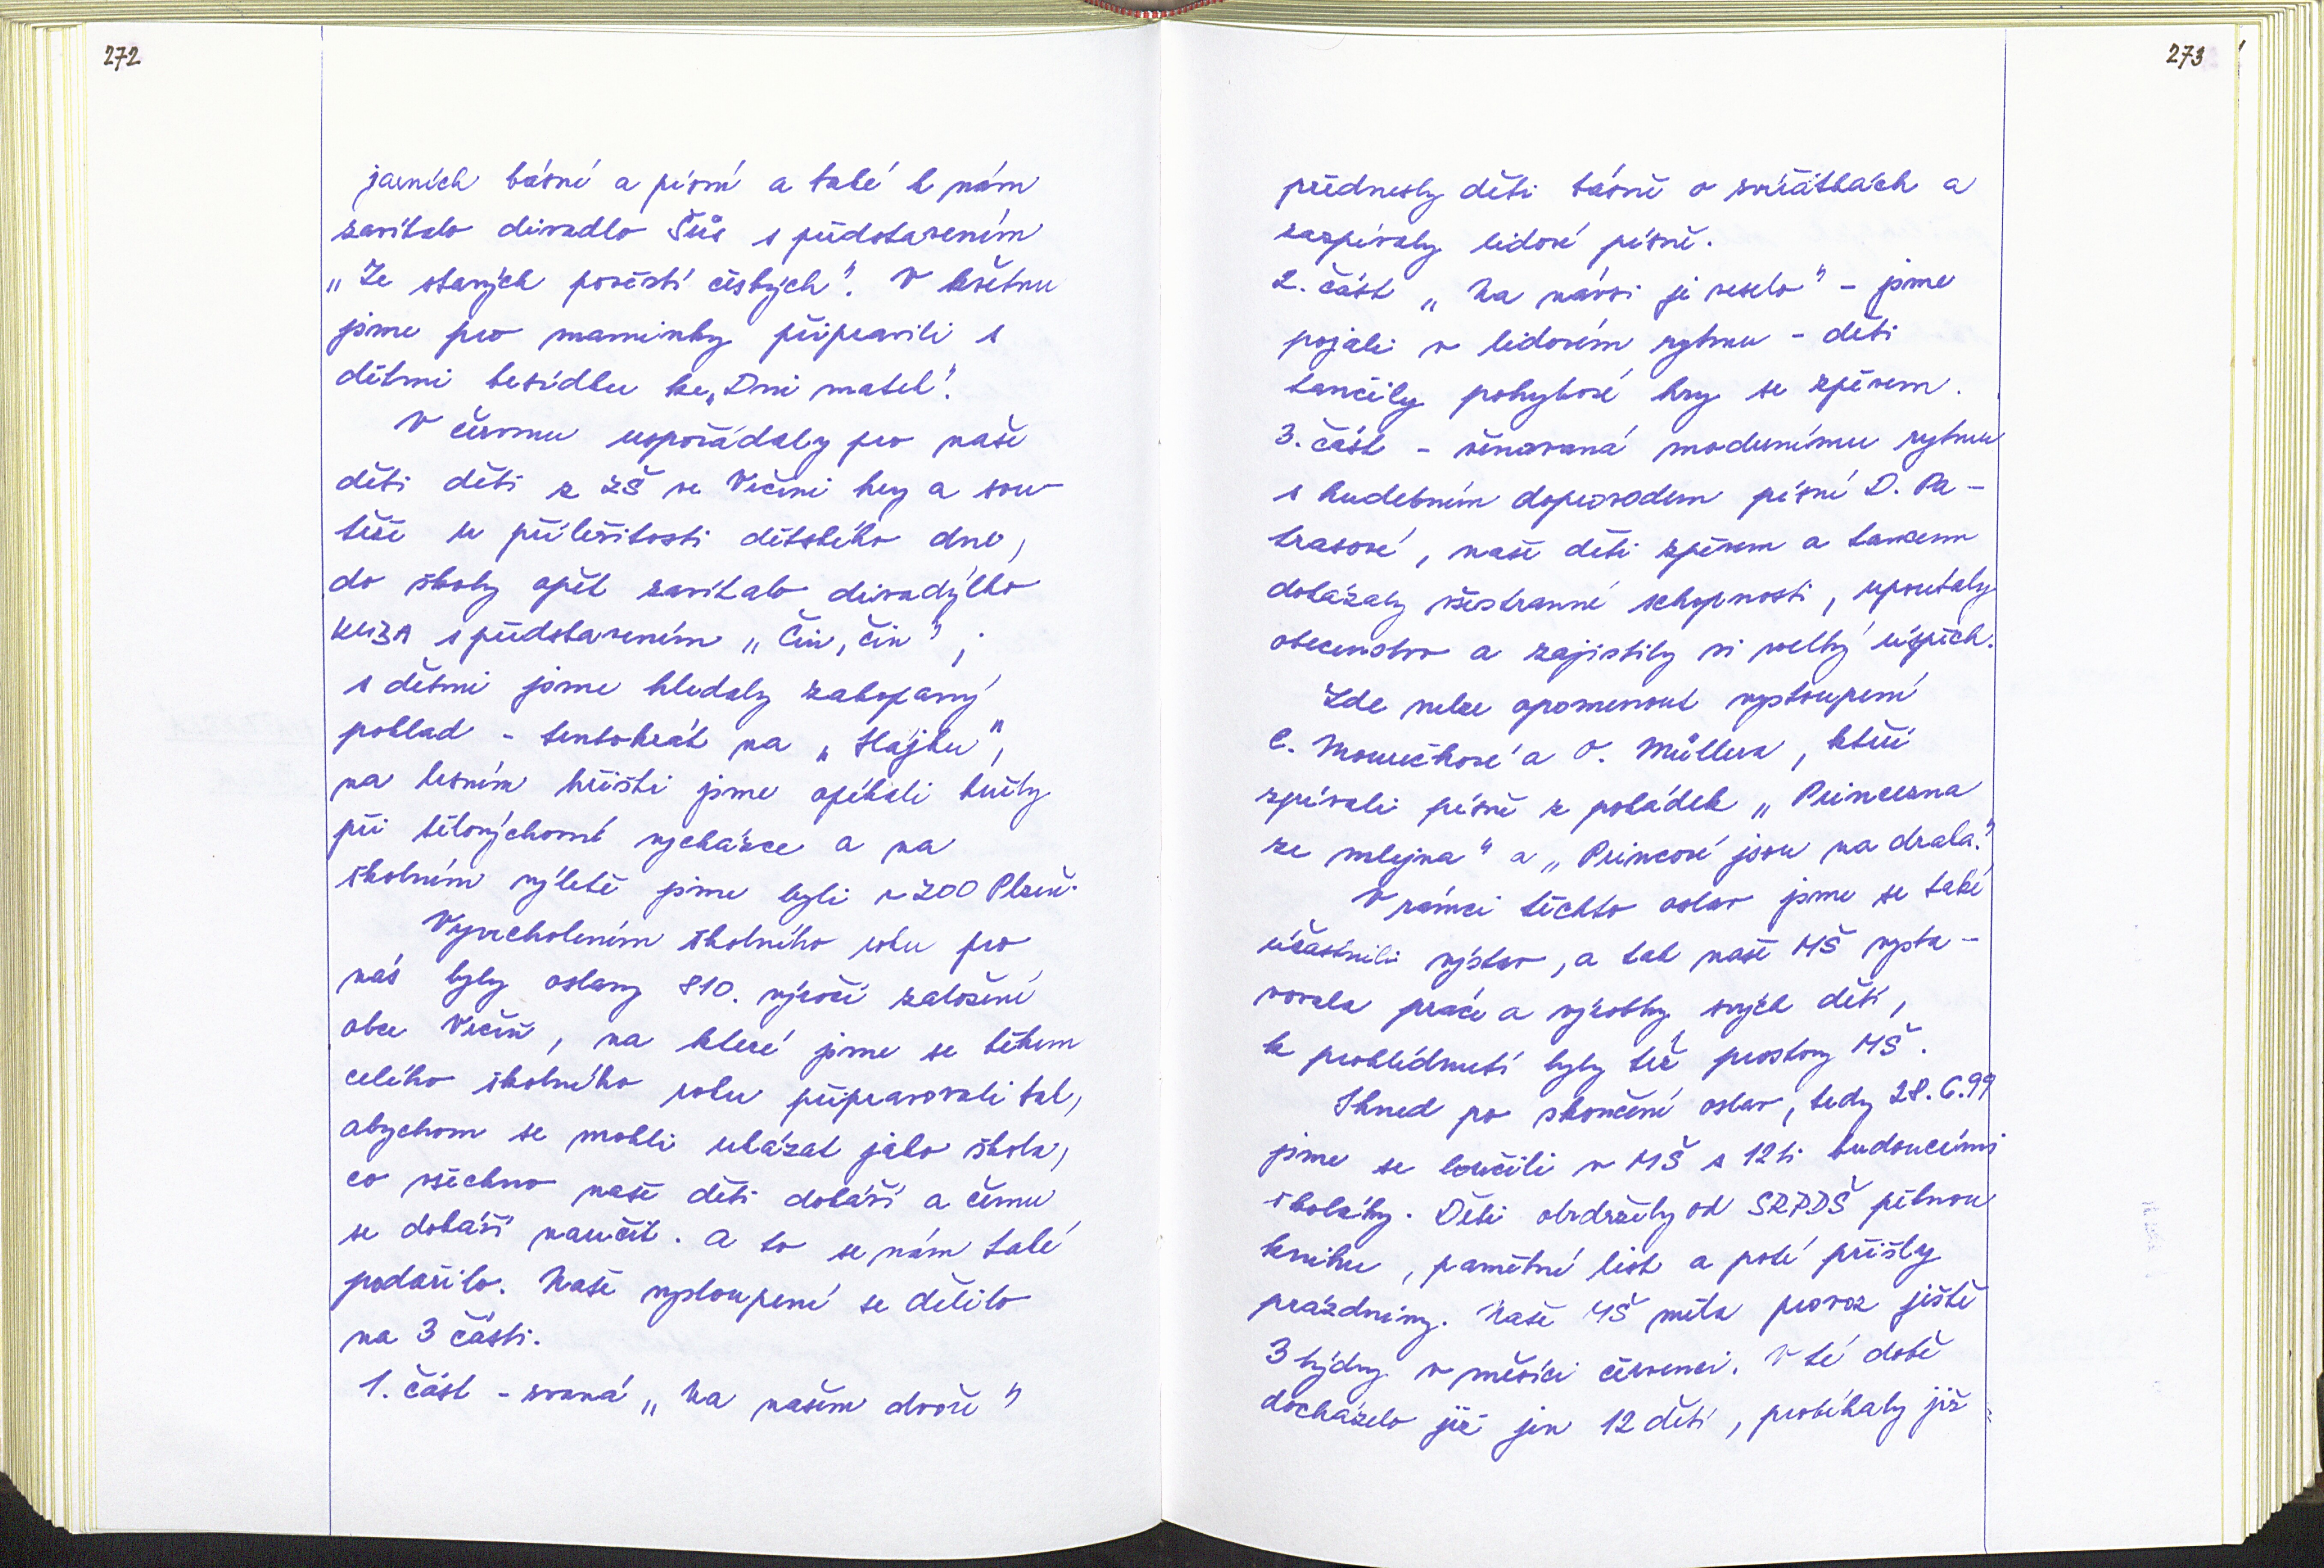 272
jarních básní a písní a také k nám
zavítalo divadlo Šůs s představením
„Ze starých pověstí českých". V květnu
jsme pro maminky připravili s
dětmi besídku ke „Dni matek".
V červnu uspořádaly pro naše
děti děti z ZŠ ve Vrčeni hry a sou-
těže u příležitosti dětského dne,
do školy opět zavítalo divadýlko
KUBA s představením „Čin, čin",
s dětmi jsme hledaly zakopaný
poklad - tentokrát na „Hájku",
na lesním hřišti jsme opékali buřty
při tělovýchovné vycházce a na
školním výletě jsme byli v ZOO Plzeň.
Vyvrcholením školního roku pro
nás byly oslavy 810. výročí založení
obce Vrčeň, na které jsme se během
celého školního roku připravovali tak,
abychom se mohli ukázat jako škola,
co všechno naše děti dokáží a čemu
se dokáží naučit. A to se nám také
podařilo. Naše vystoupení se dělilo
na 3 části.
1. část - zvaná „Na našem dvoře"
273
přednesly děti básně o zvířátkách a
zazpívaly lidové písně.
2. část „Na návsi je veselo" - jsme
pojali v lidovém rytmu - děti
tančily pohybové hry se zpěvem.
3. část - věnovaná modernímu rytmu
s hudebním doprovodem písní D. Pa-
trasové, naše děti zpěvem a tancem
dokázaly všestranné schopnosti, upoutaly
obecenstvo a zajistily si velký úspěch.
Zde nelze opomenout vystoupení
O. Müllera, kteří
zpívali písně z pohádek „Princezna
ze mlejna" a „Princové jsou na draka."
V rámci těchto oslav jsme se také
účastnili výstav, a tak naše MŠ vysta-
vovala práce a výrobky svých dětí,
k prohlédnutí byly též prostory MŠ.
Ihned po skončení oslav, tedy 28.6.99
jsme se loučili v MŠ s 12ti budoucími
školáky. Děti obdržely od SRPDŠ pěknou
knihu, pamětní list a poté přišly
prázdniny. Naše MŠ měla provoz ještě
3 týdny v měsíci červenci. V té době
docházelo již jen 12 dětí, probíhaly již